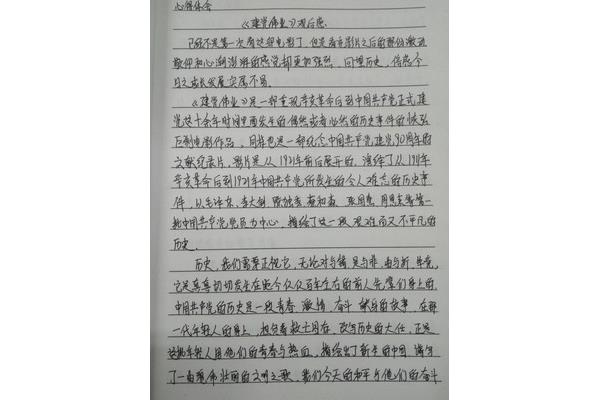 心得体会
《建党伟业》观后感
已经不是第一次看这部电影了,但是看完影片之后的那份激动
敬仰和心潮澎湃的感觉却更加强烈。回望历史,倍感今
日之成长发展实属不易。
《建党伟业》是一部重现辛亥革命后到中国共产党正式建
党这十余年时间里面发生的偶然或者必然的历史事件的恢弘
巨制电影作品。同样也是一部纪念中国共产党建党90周年的
文献纪录片,影片是从1921年前后展开的,演绎了从1911年
辛亥革命后到1921年中国共产党所发生的令人难忘的历史事
件,以毛泽东、李大钊、陈独秀、蔡和森、张国焘、周恩来等第一
批中国共产党党员为中心,描绘了这一段艰难而又不平凡的
历史。
历史,我们需要正视它,无论对与错,是与非,曲与折,毕竟,
它是真真切切发生在距今仅仅百年左右的前人先辈们身上的,
中国共产党的历史是一段青春、激情、奋斗、献身的故事,在那
一代年轻人的身上,担负着救亡图存、改写历史的大任,正是
这批年轻人用他们的青春与热血,描绘出了新生的中国,谱写
了一曲雄伟壮丽的文明之歌,我们今天的和平与他们的奋斗